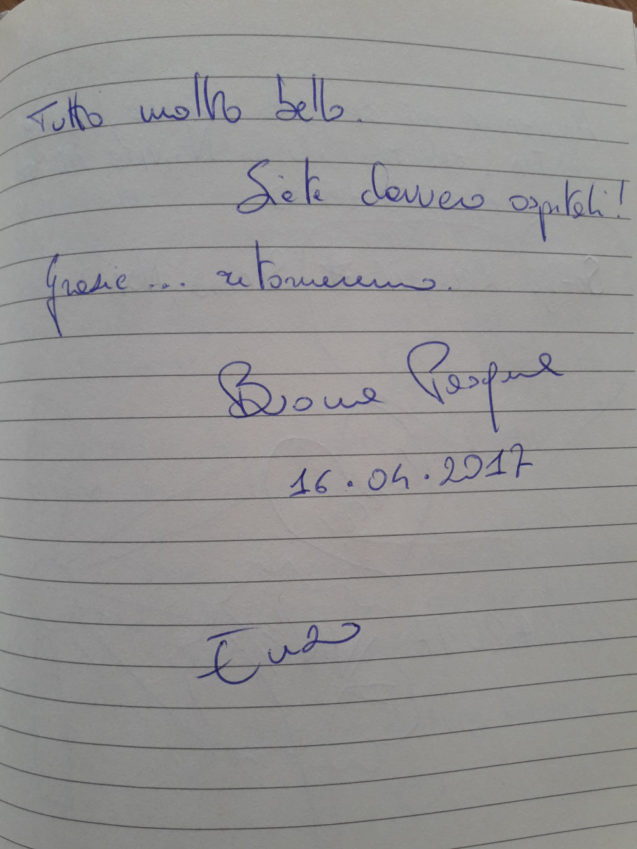 Tutto molto bello.
Siete davvero ospitali!
Grazie... ritorneremo.
Buona Pasqua
16.04.2017
Enzo